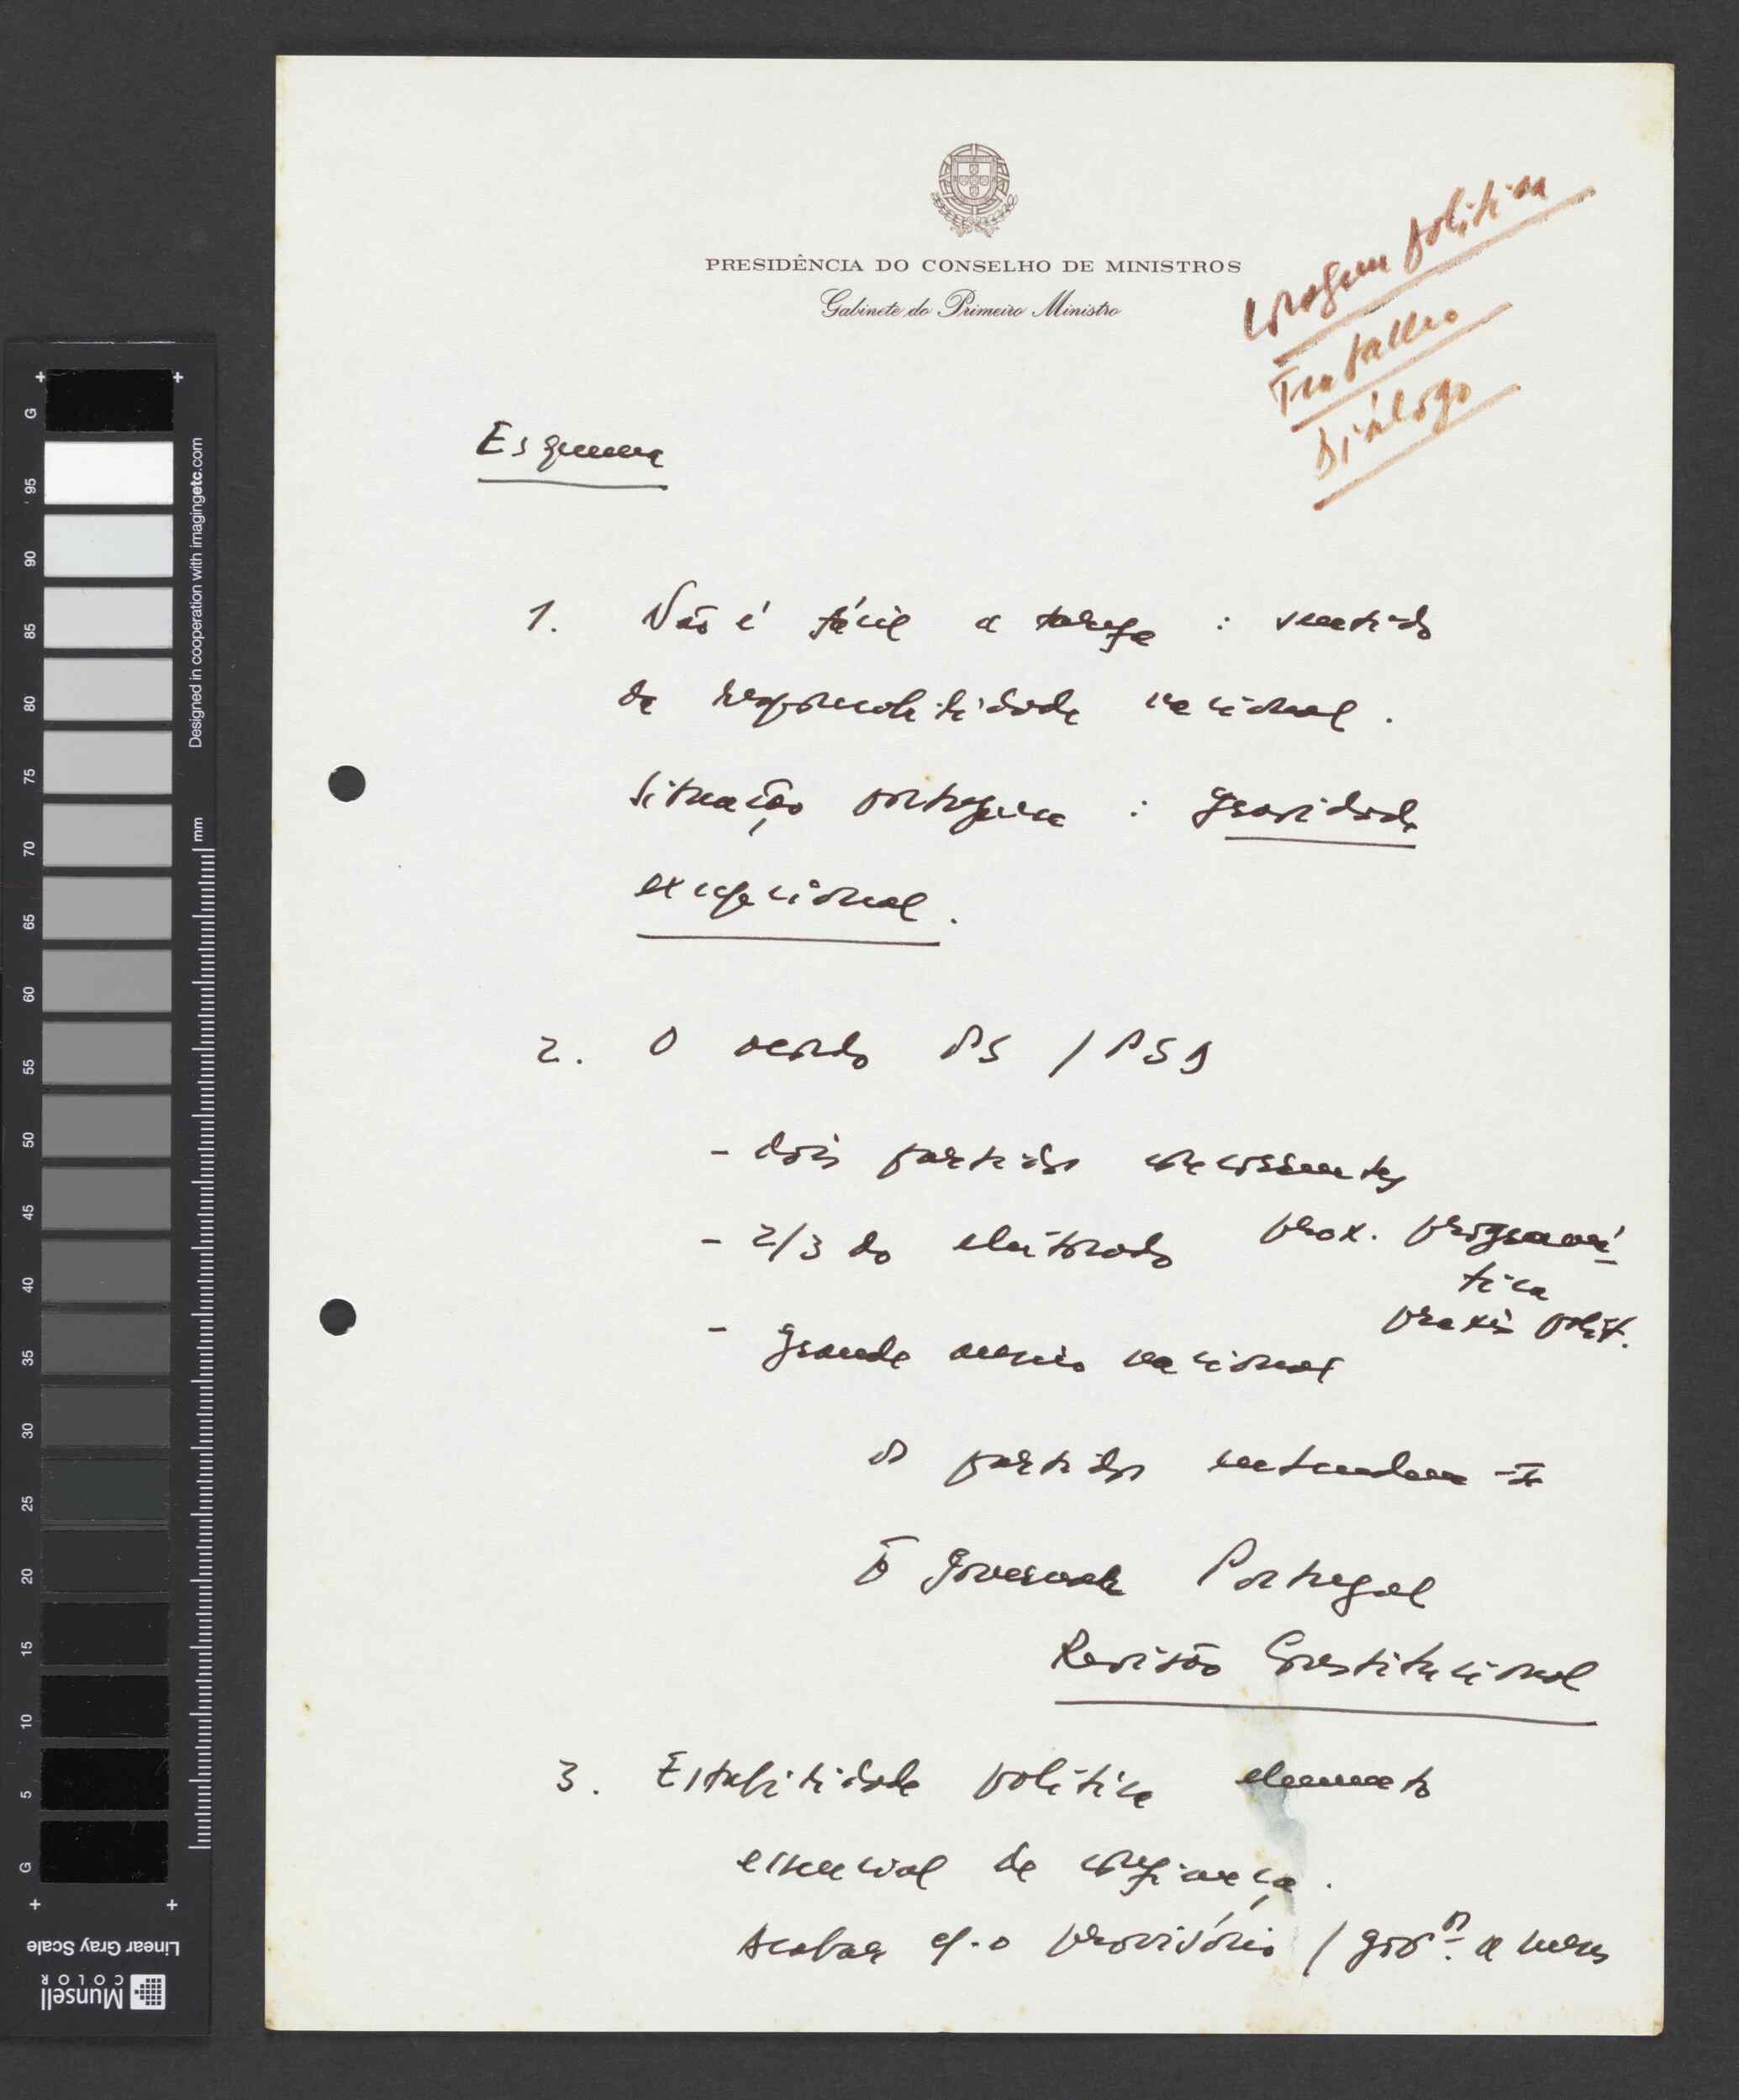 PRESIDÊNCIA DO CONSELHO DE MINISTROS
Gabinete do Primeiro Ministro
Coragem política
Trabalho
Diálogo
Esquema
1. Não é fácil a tarefa : sentido
de responsabilidade nacional.
Situação portuguesa : gravidade
excepcional.
2. O acordo PS / PSD
- dois partidos
- 2/3 do eleitorado prox. programá-
tica
praxis polít.
- grande anseio nacional
os partidos entendam-se
p governar Portugal
Revisão Constitucional
3. Estabilidade política elemento
essencial de confiança.
Acabar c/. o provisório / gov.os a meses
G
95
90
85
80
75
70
65
60
55
50
45
40
35
30
25
20
15
10
5
G
Designed in cooperation with imagingetc.com
mm
Linear Gray Scale
Munsell
COLOR